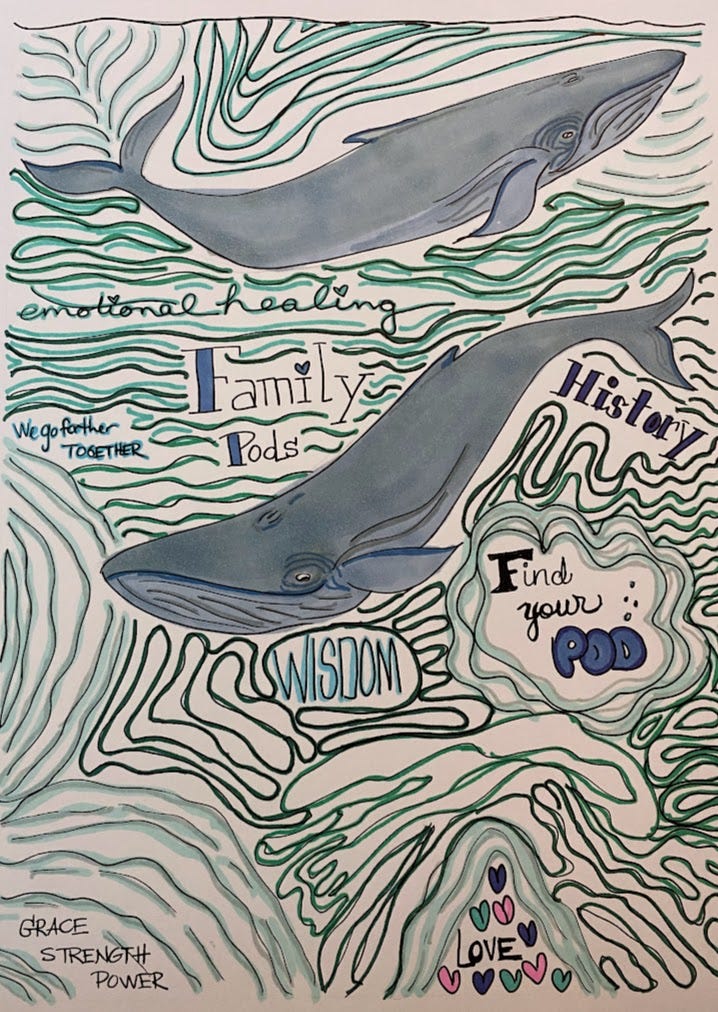 emotional healing
Family
Pods
History
We go farther
TOGETHER
Find
your
POD
WISDOM
LOVE
GRACE
STRENGTH
POWER